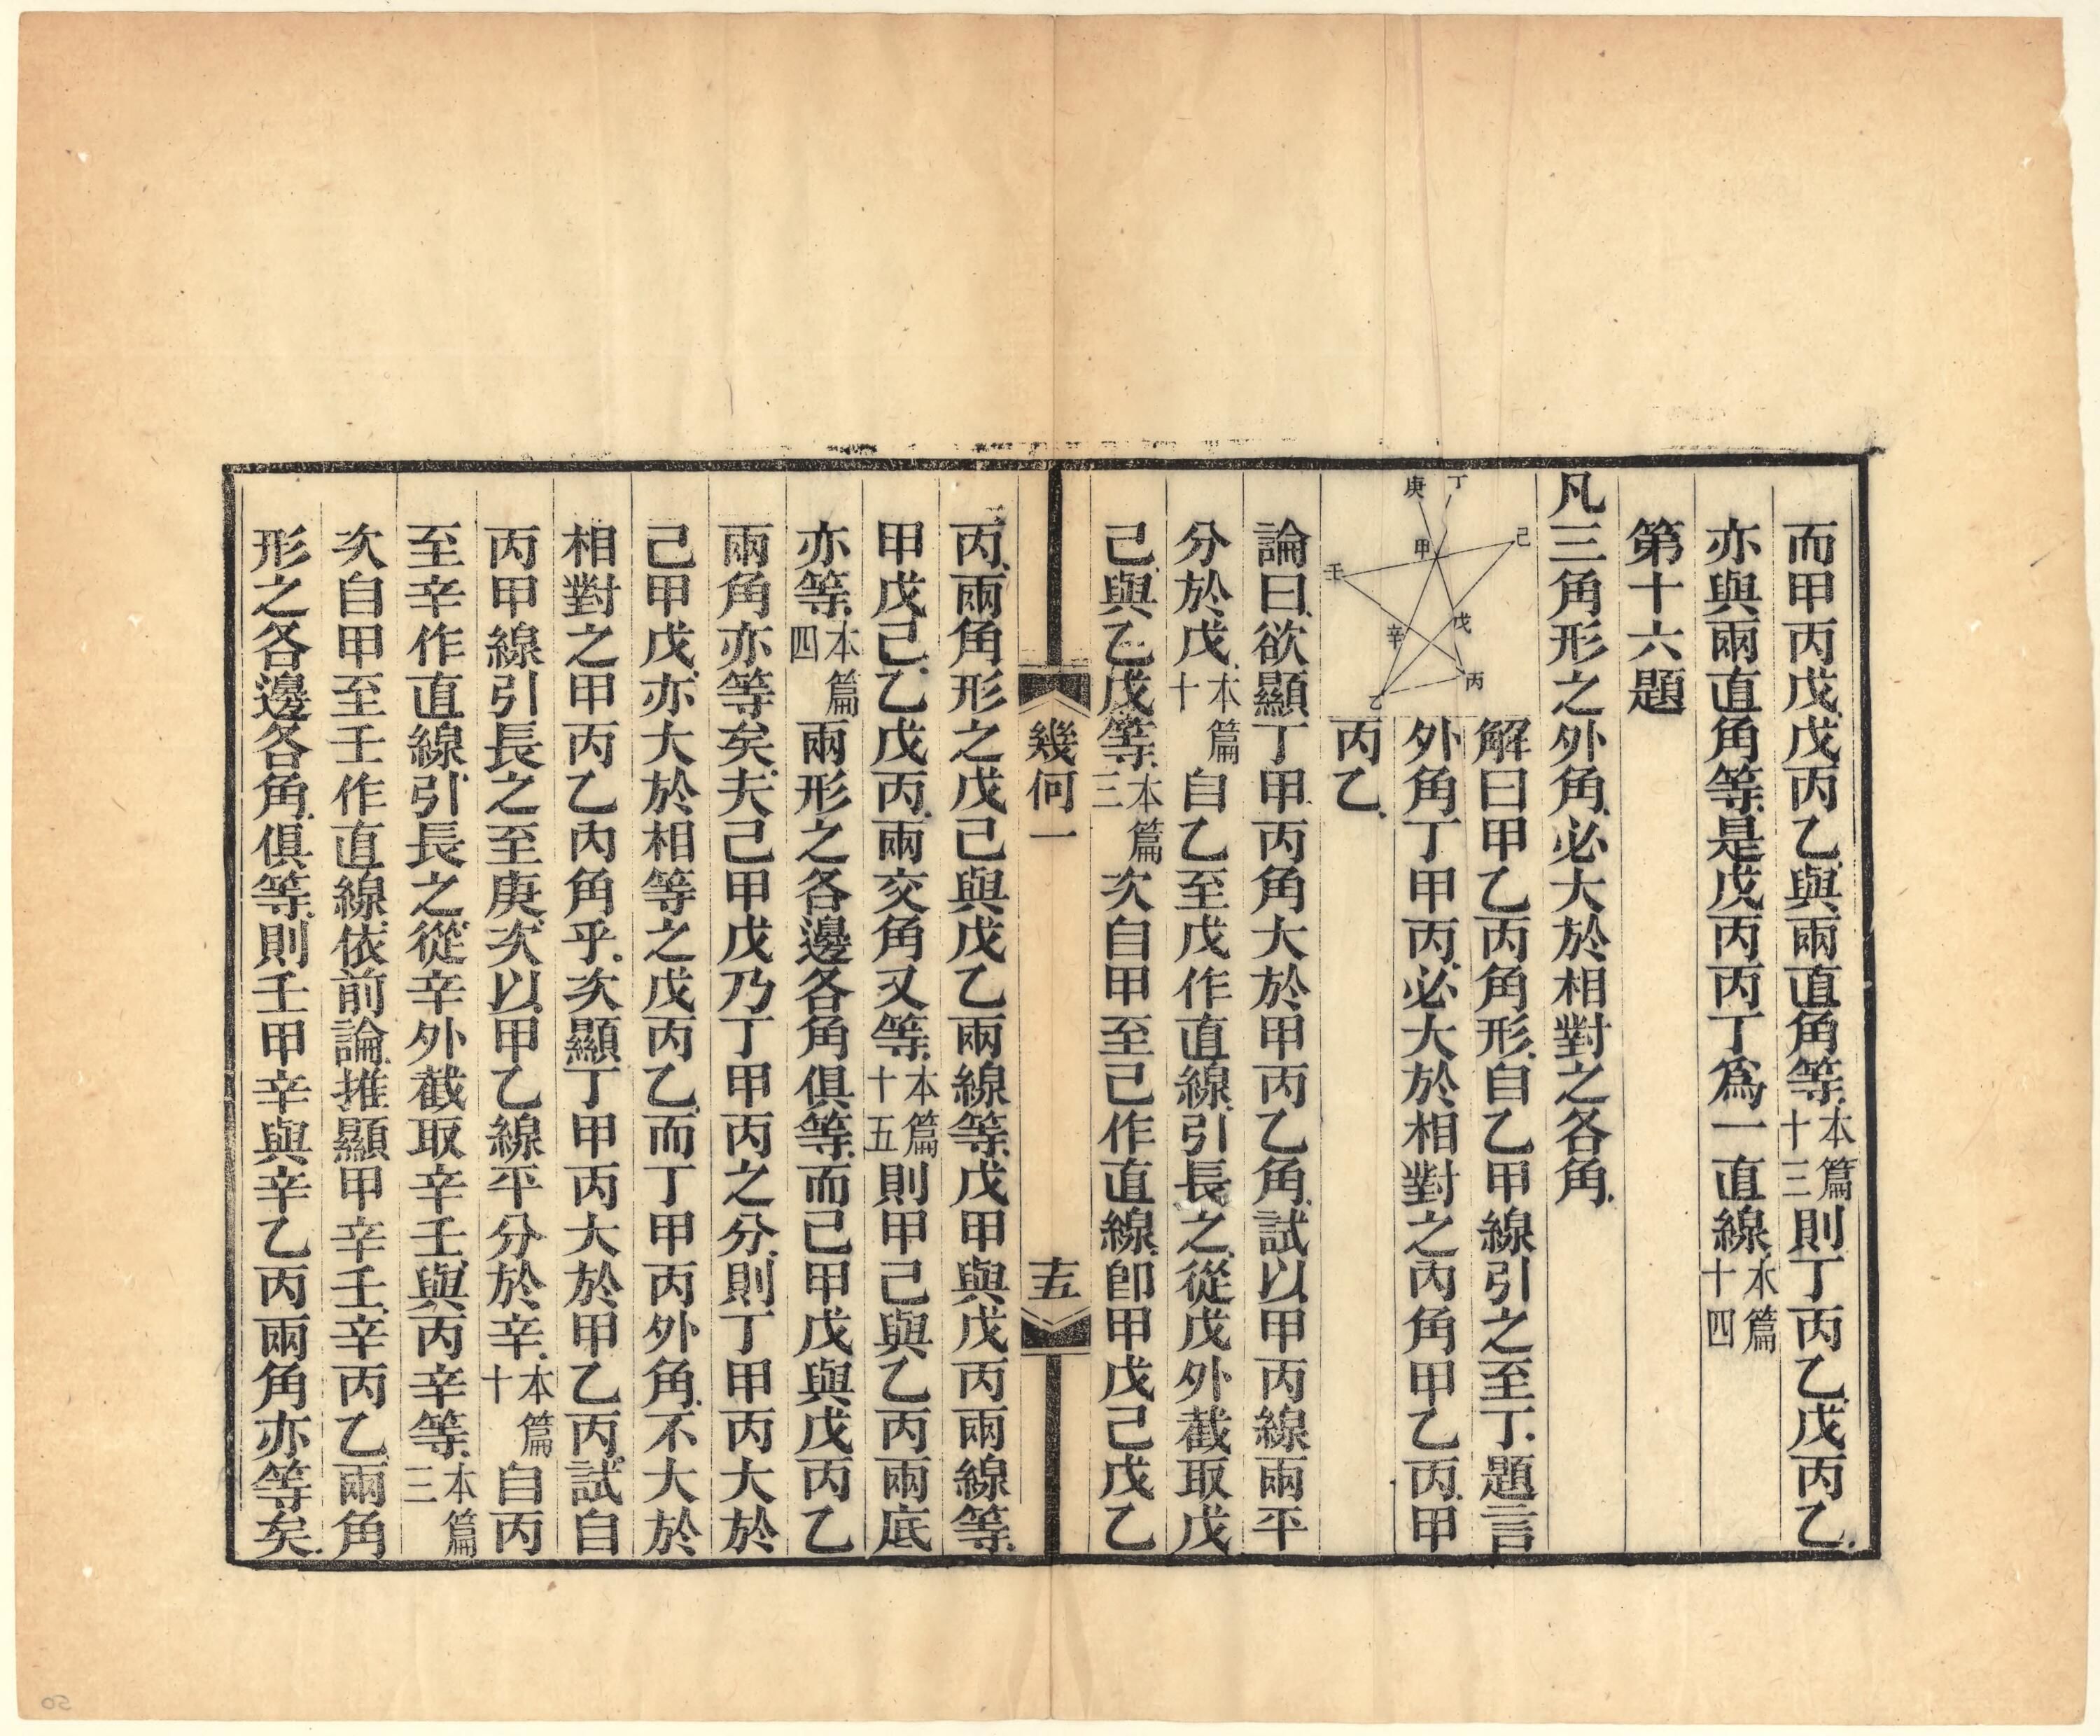 而甲丙戊戊丙乙與兩直角等本篇十三則丁丙乙戊丙乙
亦與兩直角等是戊丙丙丁爲一直線本篇十四
第十六題
凡三角形之外角必大於相對之各角
丁
庚
己
甲
壬
戊
辛
丙
乙
解曰甲乙丙角形自乙甲線引之至丁題言
外角丁甲丙必大於相對之內角甲乙丙甲
丙乙
論曰欲顯丁甲丙角大於甲丙乙角試以甲丙線兩平
分於戊本篇十自乙至戊作直線引長之從戊外截取戊
己與乙戊等本篇三次自甲至己作直線卽甲戊己戊乙
幾何一
十五
丙兩角形之戊己與戊乙兩線等戊甲與戊丙兩線等
甲戊己乙戊丙兩交角又等本篇十五則甲己與乙丙兩底
亦等本篇四兩形之各邊各角俱等而己甲戊與戊丙乙
兩角亦等矣夫己甲戊乃丁甲丙之分則丁甲丙大於
己甲戊亦大於相等之戊丙乙而丁甲丙外角不大於
相對之甲丙乙內角乎次顯丁甲丙大於甲乙丙試自
丙甲線引長之至庚次以甲乙線平分於辛本篇十自丙
至辛作直線引長之從辛外截取辛壬與丙辛等本篇三
次自甲至壬作直線依前論推顯甲辛壬辛丙乙兩角
形之各邊各角俱等則壬甲辛與辛乙丙兩角亦等矣
50